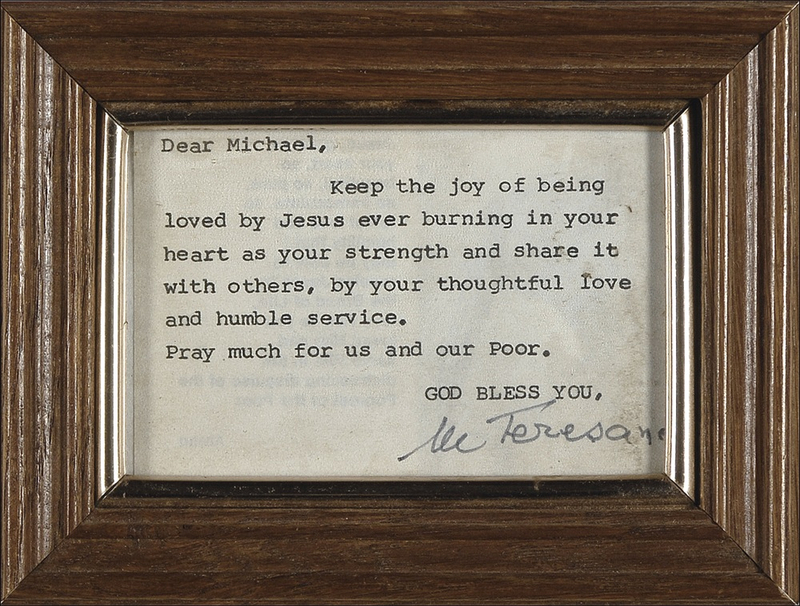 Dear Michael,
Keep the joy of being
loved by Jesus ever burning in your
heart as your strength and share it
with others, by your thoughtful love
and humble service.
Pray much for us and our Poor.
GOD BLESS YOU,
M Teresa